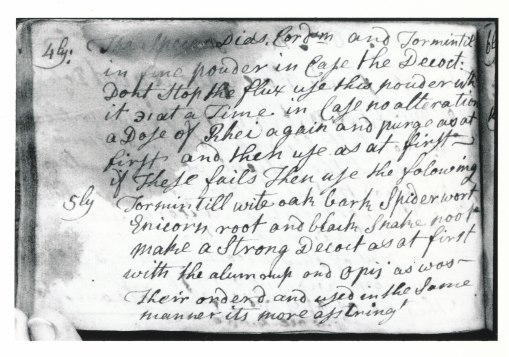 4ly: The Species Dias. Cordm and Tormintil
in fine pouder in Case the Decoct:
Dont Stop the flux use this pouder with
it at a Time in Case no alteration
a Dose of Rhei again and purge as at
first and then use as at first
if These fails Then use the folowing
5ly Tormintill wite oak bark Spiderwort
Enicorn root and black Snake root
make a Strong Decoct as at first
with the alum and opij as was
Their orderd and used in the Same
manner its more astring